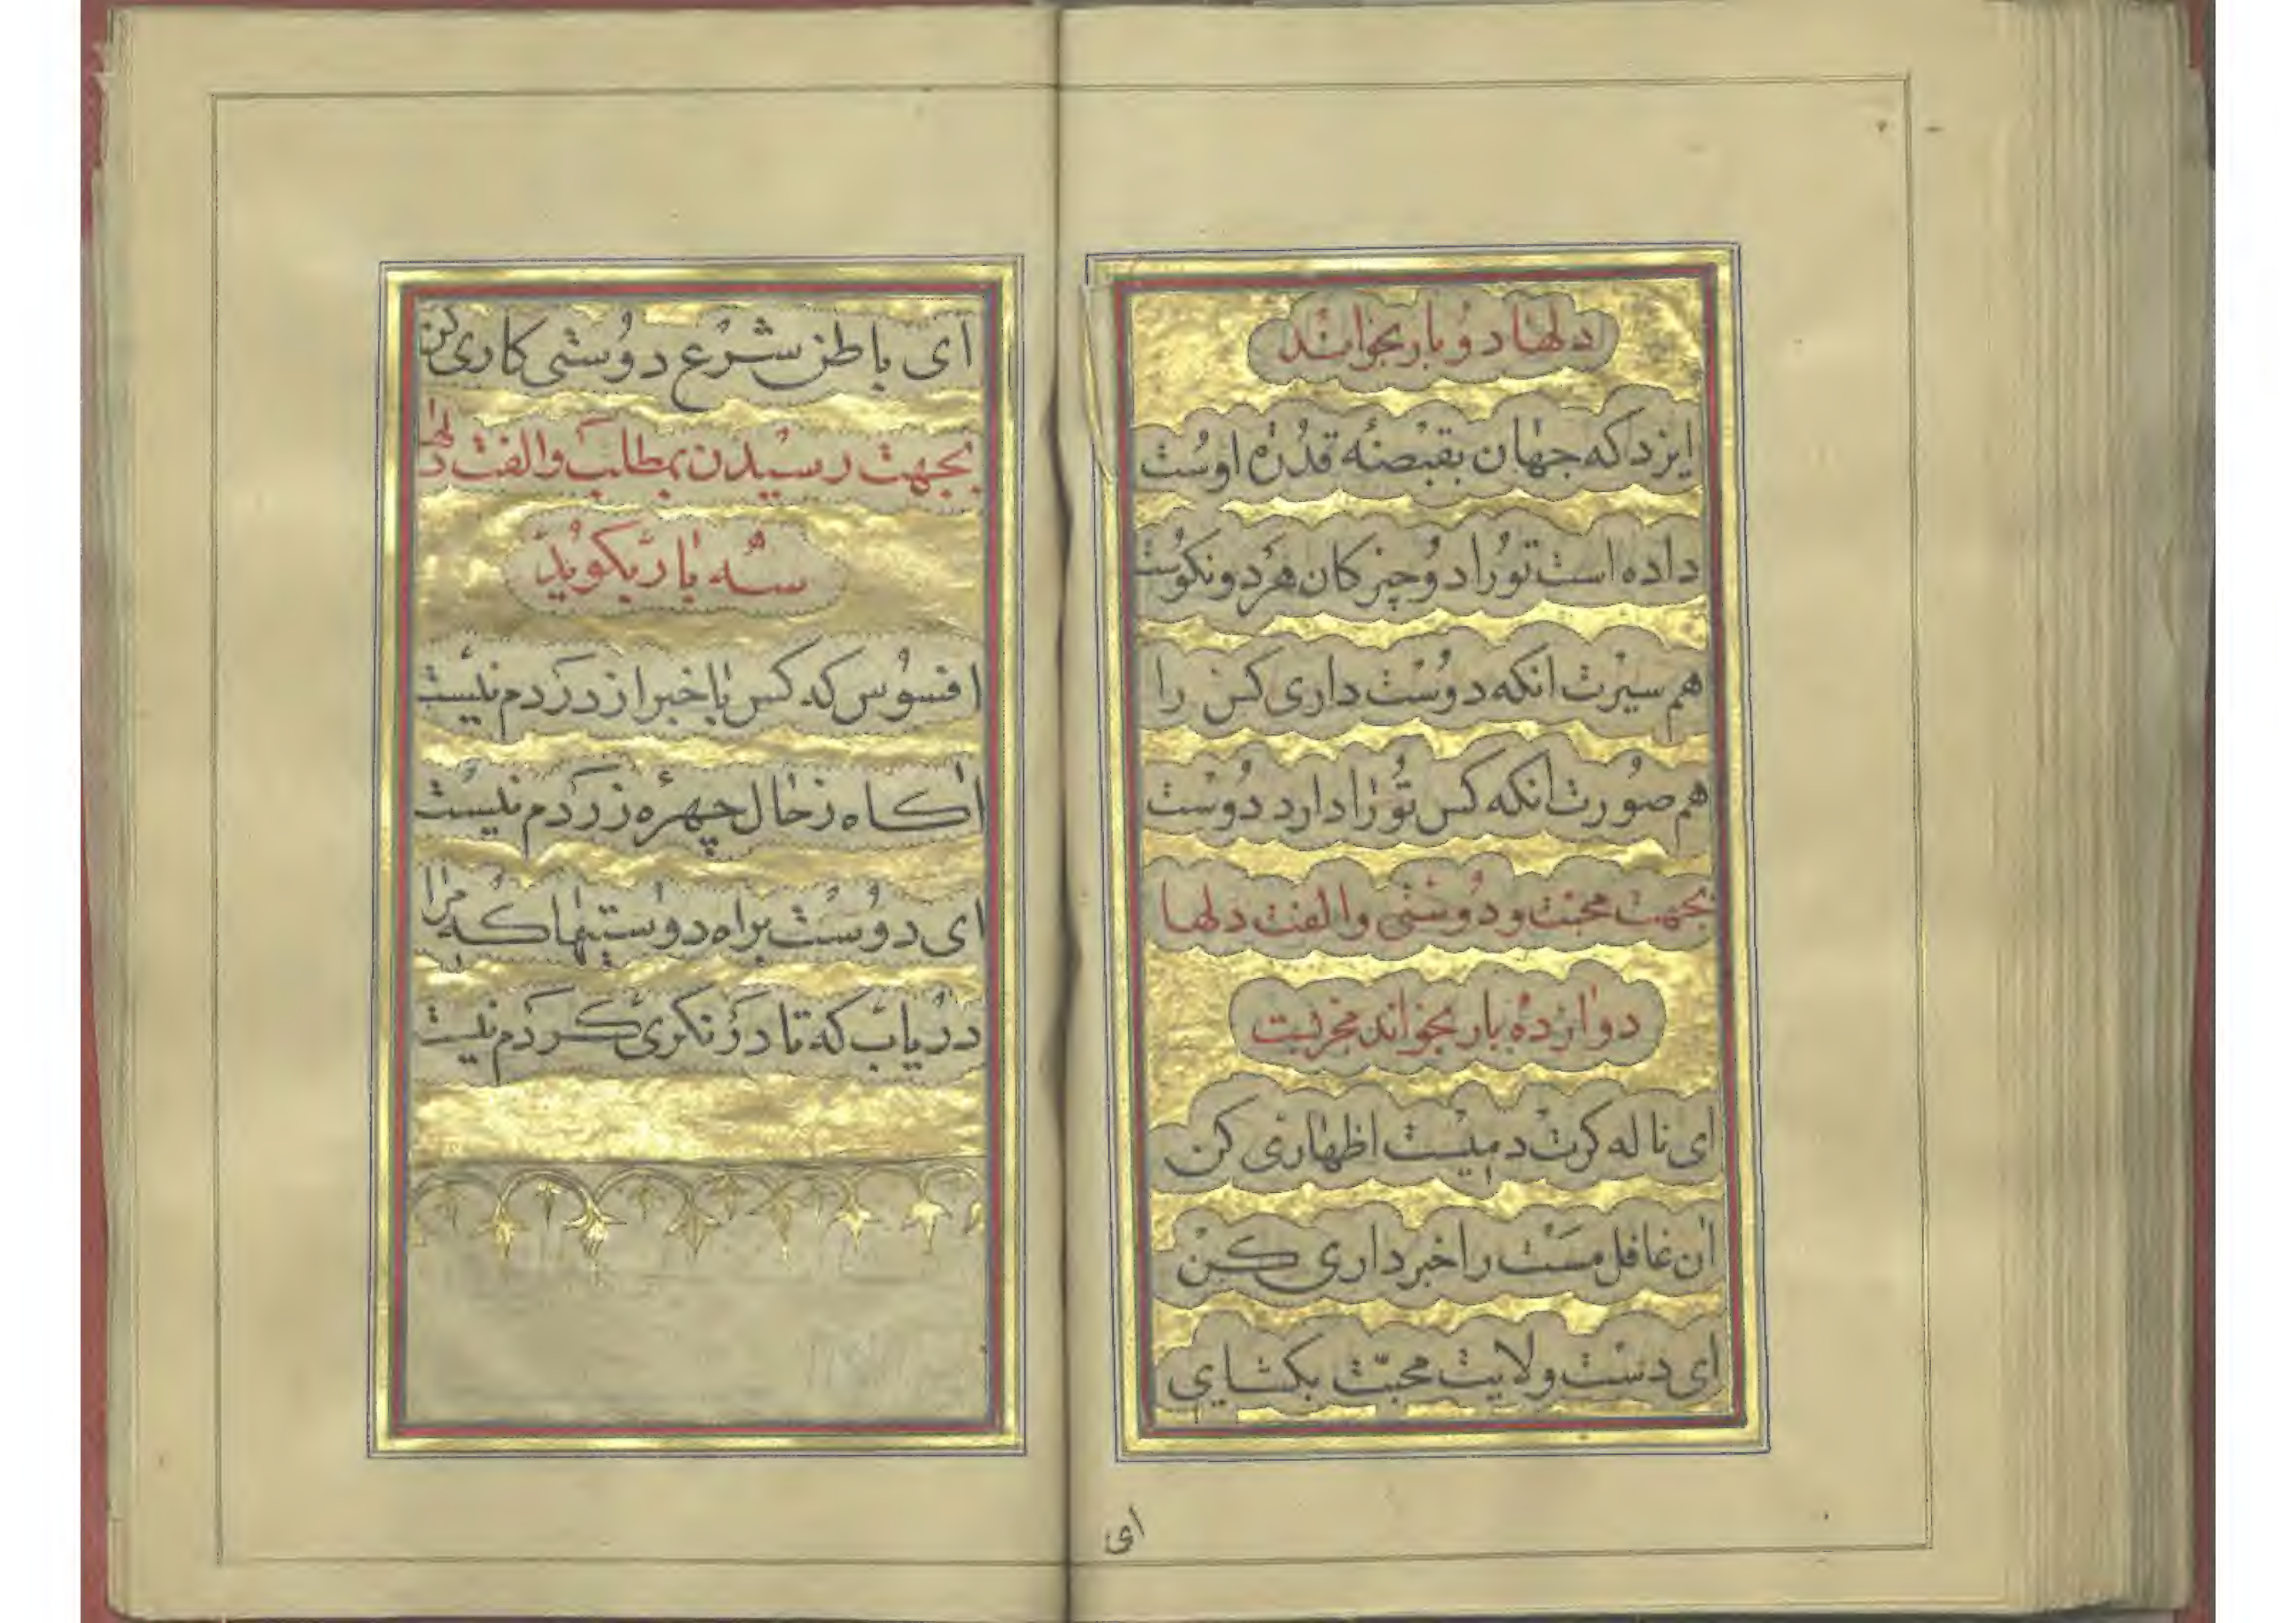 دلها دو بار بخواند
ایزد که جهان بقبضهٔ قدرة اوست
داده است تو را دو چیز کان هر دو نکوست
هم سیرت انکه دوست داری کس را
هم صورت انکه کس تو را دارد دوست
بجهت محبت و دوستی و الفت دلها
دوازده بار بخواند مجربست
ای ناله گرت دمیست اظهاری کن
ان غافل مست را خبرداری کن
ای دست ولایت محبّت بکشای
ای
ای باطن شرع دوستی کاری کن
بجهت رسیدن بمطلب و الفت دلها
سه بار بکوید
افسوس که کس باخبر از دردم نیست
اکاه ز حال چهرهٔ زردم نیست
ای دوست براه دوستیها که مرا
دریاب که تا در نکری کردم نیست